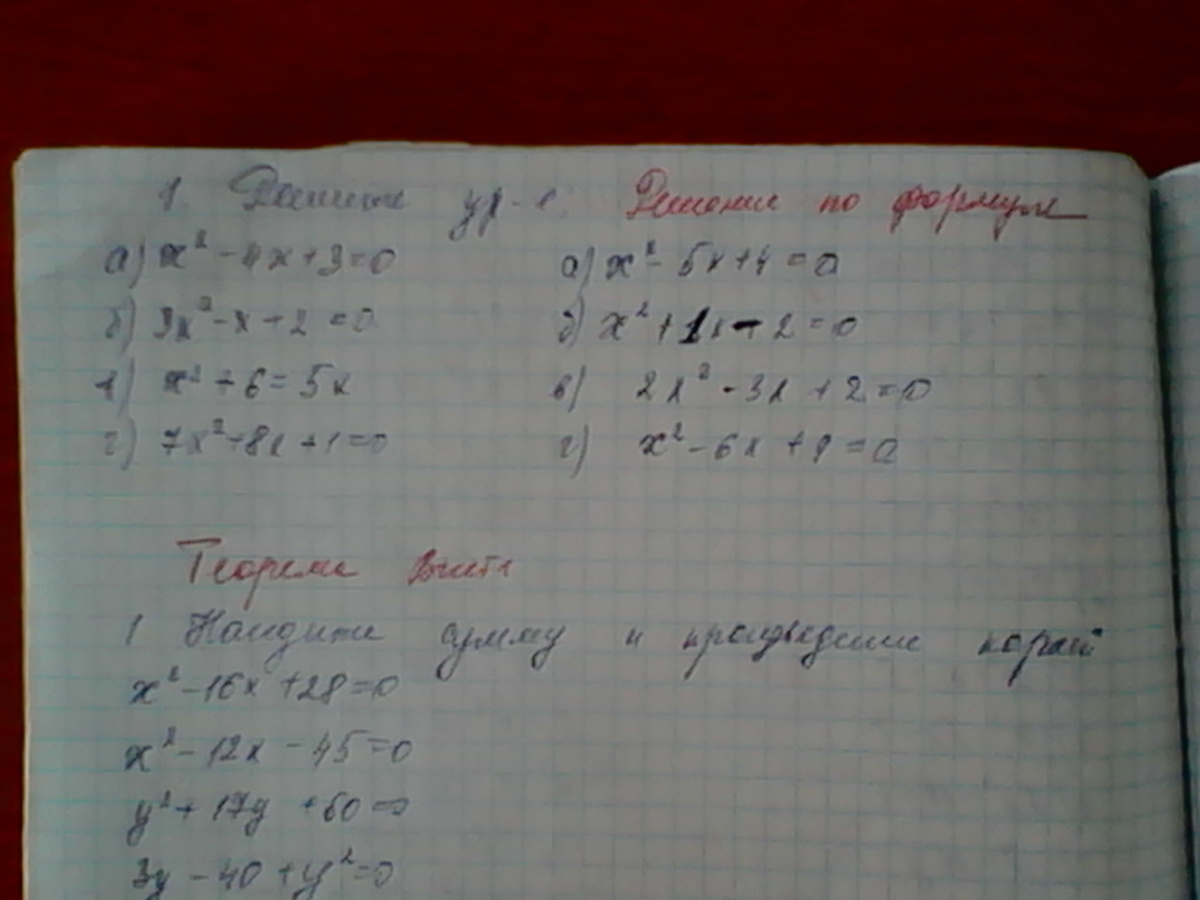 1. Решите ур-е. Решение по формуле
а) x² - 4x + 3 = 0 а) x² - 5x + 4 = 0
б) 3x² - x + 2 = 0 б) x² + 1x - 2 = 0
в) x² + 6 = 5x в) 2x² - 3x + 2 = 0
г) 7x² + 8x + 1 = 0 г) x² - 6x + 9 = 0
Теорема Виета
1 Найдите сумму и произведение корней
x² - 16x + 28 = 0
x² - 12x - 45 = 0
y² + 17y + 60 = 0
3y - 40 + y² = 0